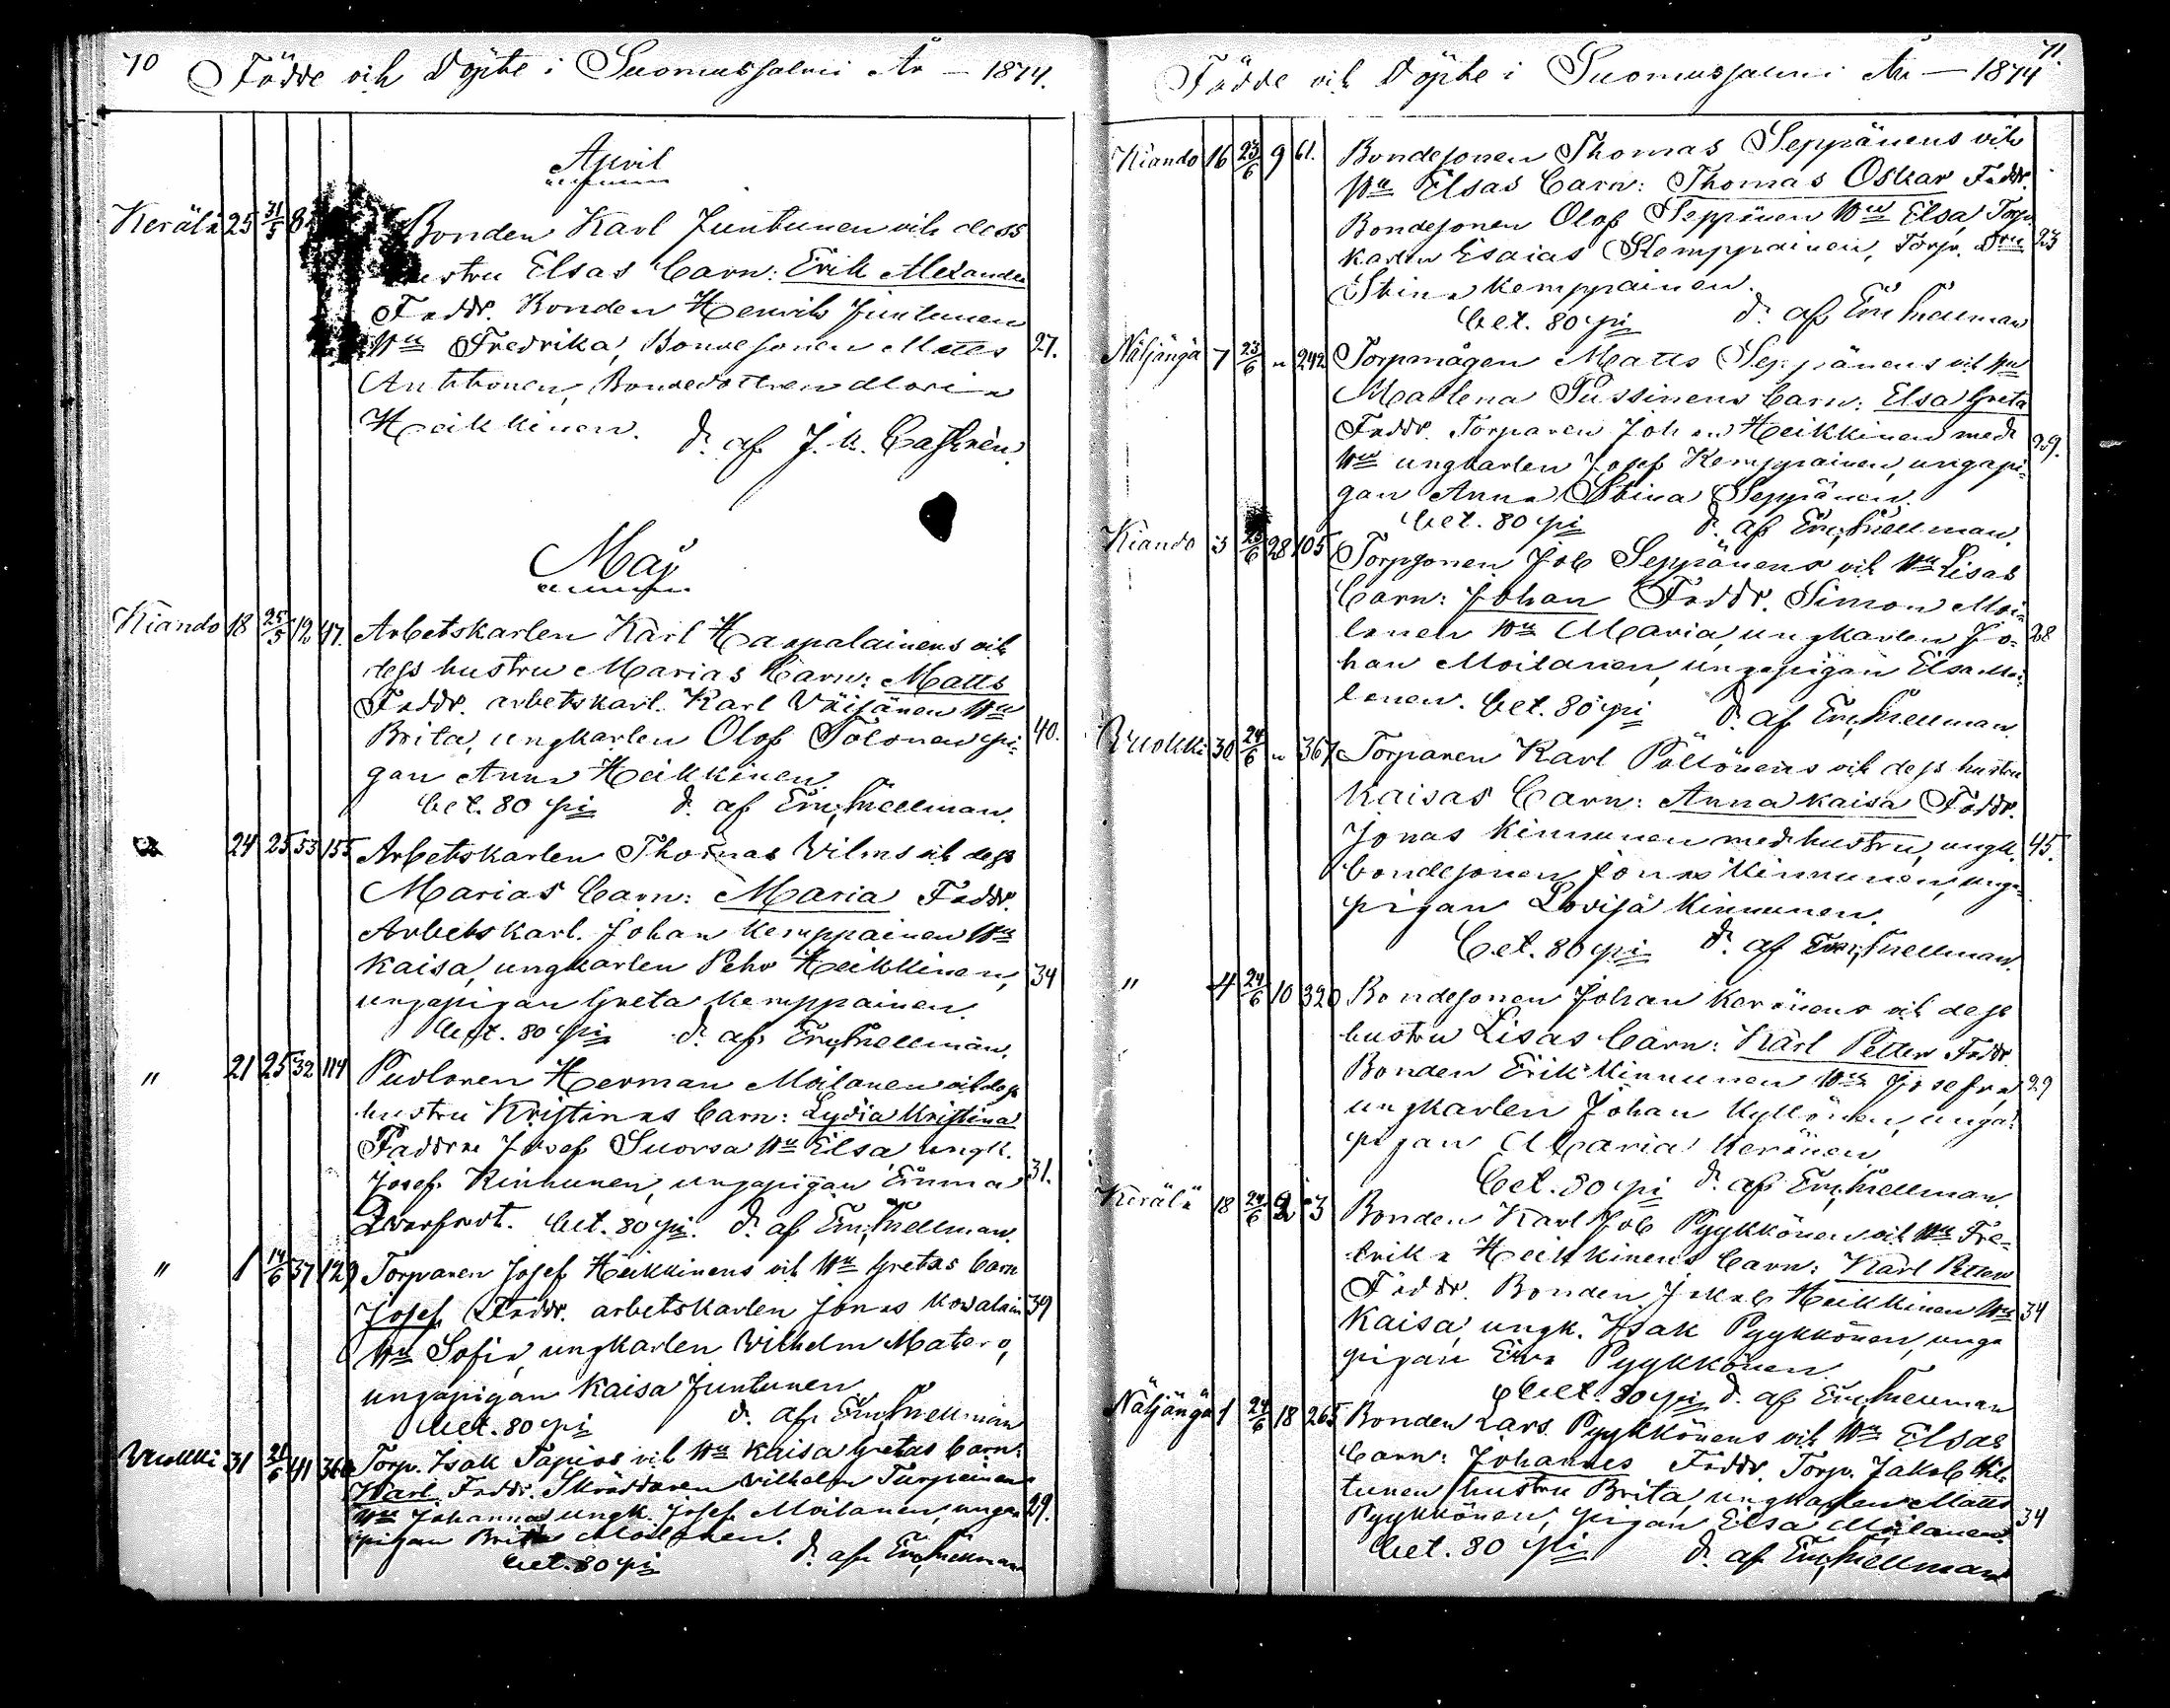 70 Födde och Döpte i Suomussalmi År — 1874.
April
Kerälä 25 31/5 8 Bonden Karl Juntunen och dess
hustru Elsas barn: Erik Alexander
Faddr. Bonden Henrik Juntunen
Hu Fredrika, Bondesonen Matts 27.
Anttonen, Bondedottren Maria
Heikkinen. d. af J. K. Castrén.
Maj
Kiando 18 25/5 12 47. Arbetskarlen Karl Haapalainens och
dess hustru Marias barn: Matts
Faddr. arbetskarl. Karl Väisänen Hu
Brita, ungkarlen Olof Tolonen pi- 40.
gan Anna Heikkinen
bet. 80 pi d. af Em. Snellman.
24 25 53 155 Arbetskarlen Thomas Vilms och dess
Marias barn: Maria Faddr.
Arbetskarl. Johan Kemppainen Hu
Kaisa, ungkarlen Pehr Heikkinen, 34
ungapigan Greta Kemppainen.
bet. 80 pi d. af Em. Snellman.
" 21 25 32 114 Pustoren Herman Moilanen och dess
hustru Kristinas barn: Lydia Kristina
Faddrne Josef Suorsa Hu Elsa ungk.
Josef Kinnunen, ungapigan Emma 31.
bet. 80 pi. d. af Em. Snellman.
" 1 14/6 37 129 Torparen Josef Heikkinens och Hu Gretas barn
Josef Faddr. arbetskarlen Jonas Kovalain 39
Hu Sofia, ungkarlen Vilhelm Matero,
ungapigan Kaisa Juntunen
bet. 80 pi d. af Em. Snellman
Vuokki 31 21/6 41 360 Torp. Isak Tapios och Hu Kaisa Gretas barn:
Karl. Faddr. Skräddaren Vilhelm Turpeinen
Hu Johanna, ungk. Josef Moilanen, unga 29.
pigan Brita Moilanen. d. af Em. Snellman
bet. 80 pi
Födde och Döpte i Suomussalmi År — 1874 71.
Kiando 16 23/6 9 61. Bondesonen Thomas Seppänens och
Hu Elsas barn: Thomas Oskar Faddr.
Bondesonen Olof Seppänen Hu Elsa, Torp.
karlen Esaias Kemppainen, Torp. dru 23
Stina Kemppainen.
bet. 80 pi d. af Em. Snellman
Näljängä 7 23/6 " 242 Torpmågen Matts Seppänens och Hu
Madlena Pussinens barn: Elsa Greta
Faddr. Torparen Johan Heikkinen med 29.
Hu ungkarlen Josef Kemppainen, ungapi-
gan Anna Stina Seppänen.
bet. 80 pi d. af Em. Snellman.
Kiando 3 23/6 28 105 Torpsonen Job Seppänens och Hu Lisas
barn: Johan Faddr. Simon Moi-
lanen Hu Maria, ungkarlen Jo- 28
han Moilanen, ungapigan Elsa Moi-
lanen. bet. 80 pi d. af Em. Snellman.
Vuokki 30 24/6 " 367 Torparen Karl Pöllönens och dess hustru
Kaisas barn: Anna Kaisa Faddr.
Jonas Kinnunen med hustru, ungk. 45.
bondesonen Jonas Kinnunen, unga-
pigan Lovisa Kinnunen.
bet. 80 pi d. af Em. Snellman.
" 4 24/6 10 320 Bondesonen Johan Keränens och dess
hustru Lisas barn: Karl Petter Faddr
Bonden Erik Kinnunen Hu Josefna 29
ungkarlen Johan Kyllönen, unga-
pigan Maria Keränen
bet. 80 pi d. af Em. Snellman.
Kerälä 18 24/6 2 3 Bonden Karl Job Pyykkönen och Hu Fre-
drika Heikkinens barn: Karl Petter
Faddr. Bonden Jakob Heikkinen Hu 34
Kaisa, ungk. Isak Pyykkönen, unga
pigan Eva Pyykkönen.
bet. 80 pi d. af Em. Snellman
Näljängä 1 24/6 18 265 Bonden Lars Pyykkönens och Hu Elsas
barn: Johannes Faddr. Torp. Jakob Kil-
tunen hustru Brita, ungkarlen Matts
Pyykkönen, pigan Elsa Moilanen. 34
bet. 80 pi d. af Em. Snellman